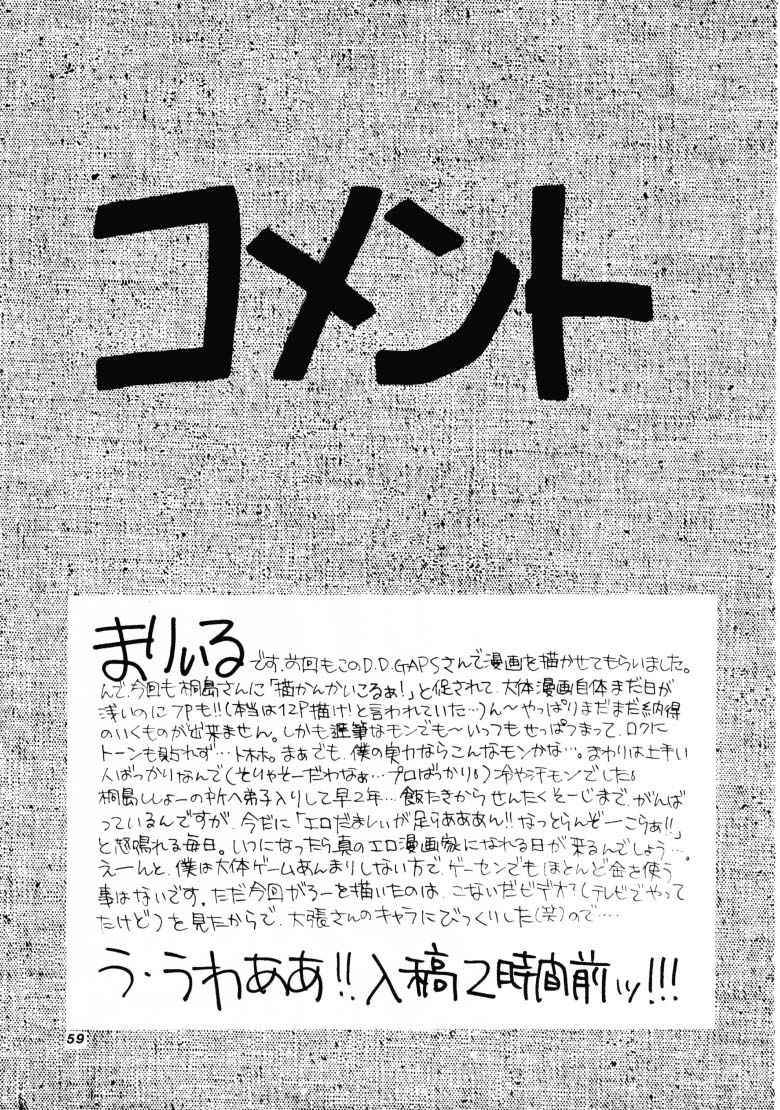 コメント
まりぃるです。前回もこのD.D.GAPSさんで漫画を描かせてもらいました。
んで、今回も桐島さんに「描かんかいこるぁ!」と促されて、大体漫画自体まだ日が
浅いのに7Pも!!(本当は12P描け!と言われていた…)ん〜やっぱりまだまだ納得
のいくものが出来ません。しかも遅筆なモンでも〜いっつもせっぱつまって、ロクに
トーンも貼れず…トホホ。まぁでも、僕の実力ならこんなモンかな…。まわりは上手い
人ばっかりなんで(そりゃそーだわなぁ…プロばっかり)冷や汗モンでした
桐島ししょーの所へ弟子入りして早2年…飯たきからせんたくそーじまで、がんば
っているんですが、今だに「エロだましぃが足らあああん!!なっとらんぞーこらぁ!!」
と怒鳴れる毎日。いつになったら真のエロ漫画家になれる日が来るんでしょう…
えーんと、僕は大体ゲームあんまりしない方で、ゲーセンでもほとんど金を使う
事はないです。ただ今回がろーを描いたのは、こないだビデオ?(テレビでやって
たけど)を見たからで、大張さんのキャラにびっくりした(笑)ので‥‥
う・うわああ!!入稿2時間前ッ!!!
59